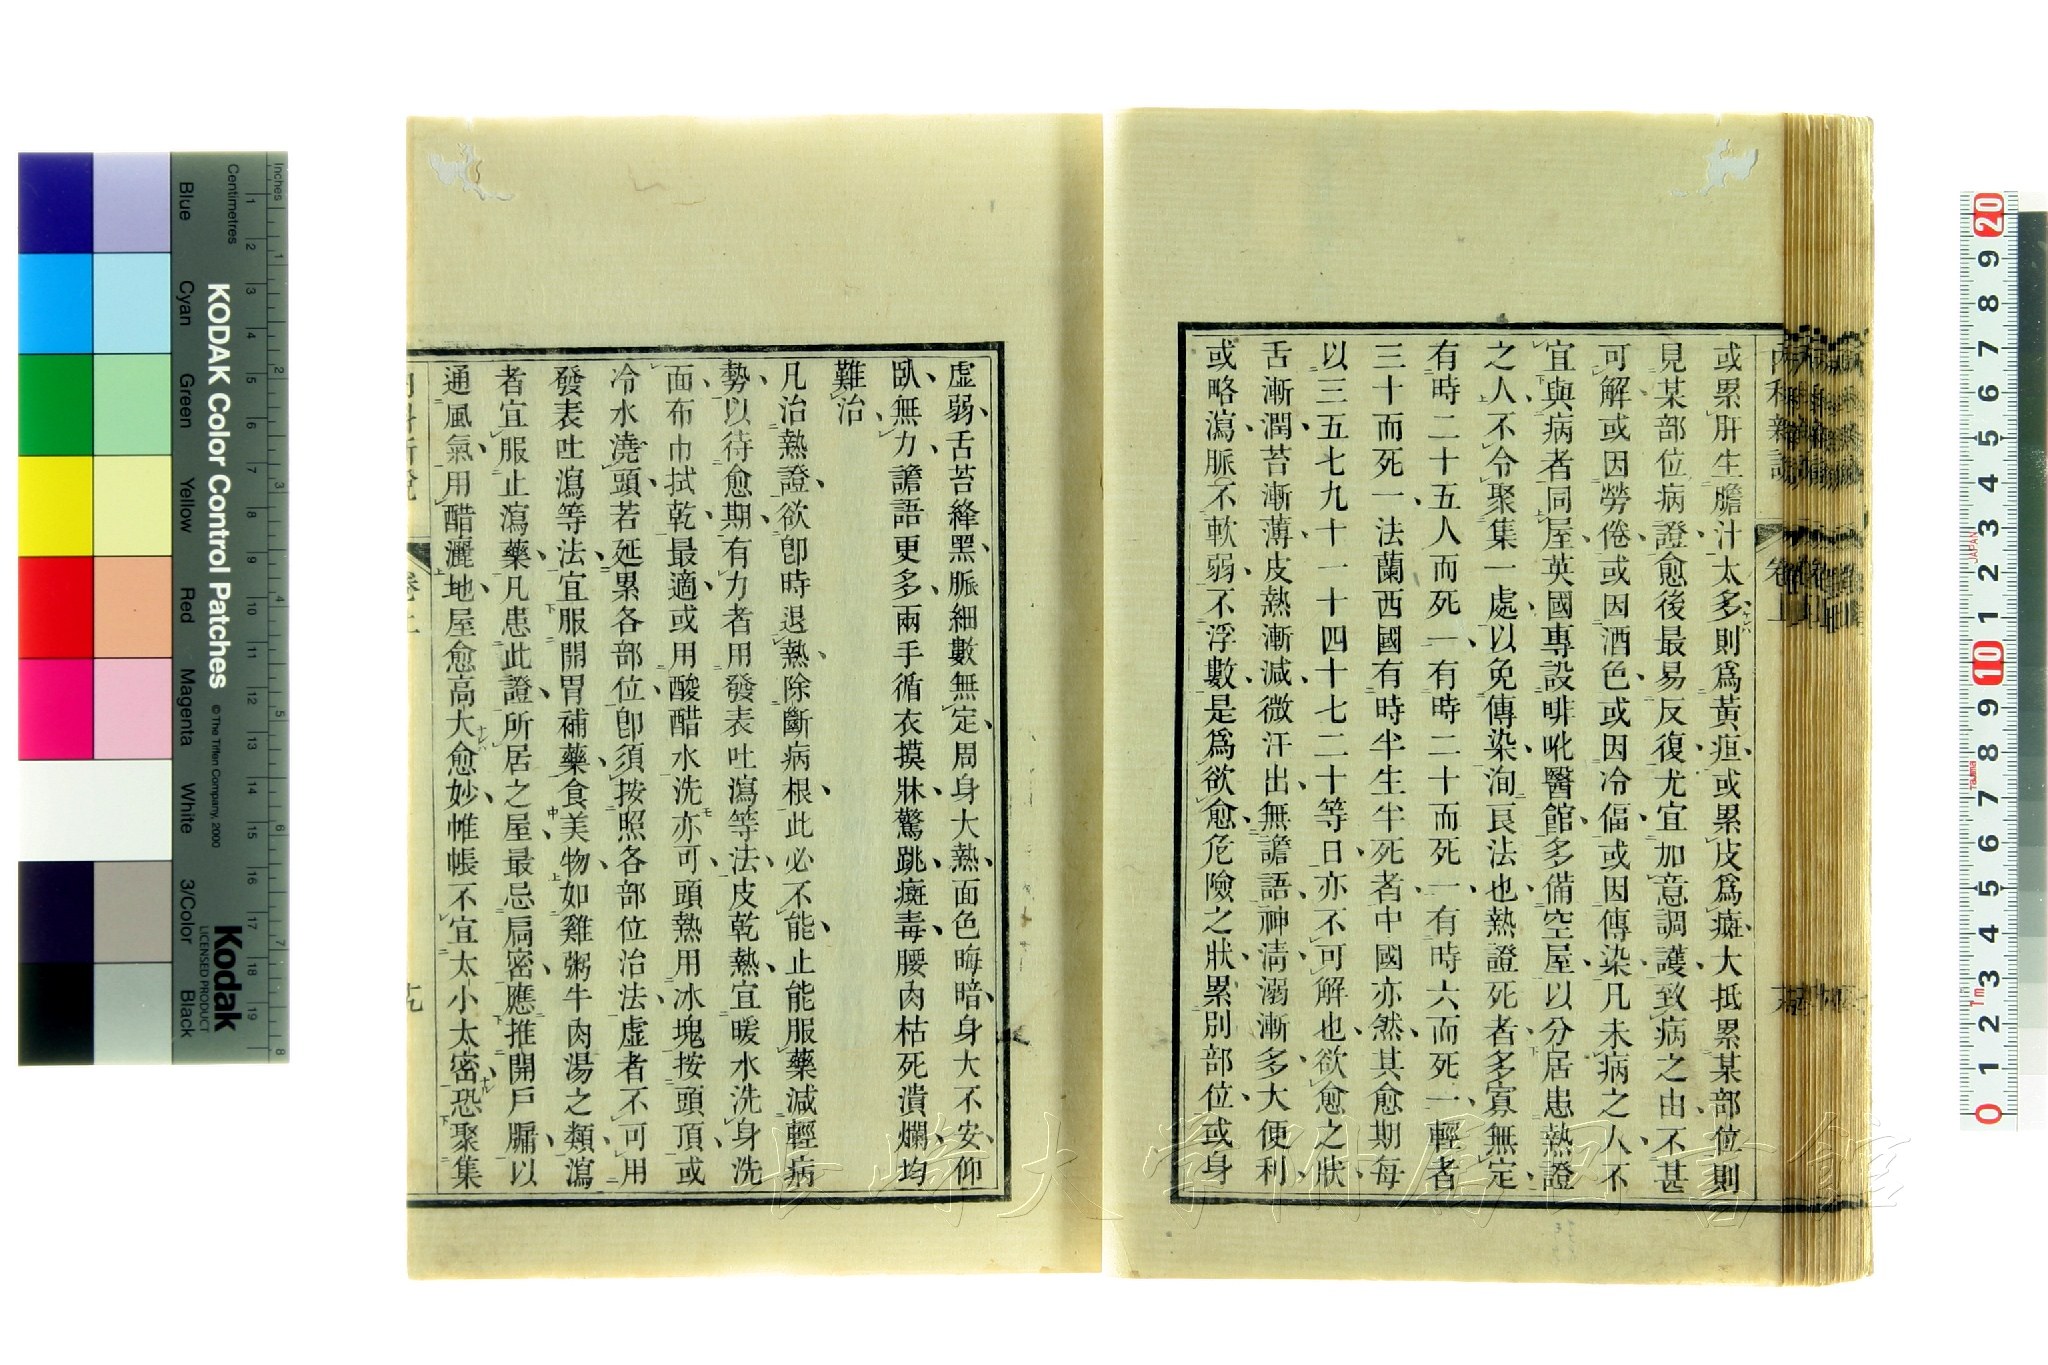 或累肝生膽汁太多則爲黃疸或累皮爲癍大抵累某部位則
見某部位病證愈後最易反復尤宜加意調護致病之由不甚
可解或因勞倦或因酒色或因冷偪或因傳染凡未病之人不
宜與病者同屋英國專設啡吡醫館多備空屋以分居患熱證
之人不令聚集一處以免傳染洵良法也熱證死者多寡無定
有時二十五人而死一有時二十而死一有時六而死一輕者
三十而死一法蘭西國有時半生半死者中國亦然其愈期每
以三五七九十一十四十七二十等日亦不可解也欲愈之狀
舌漸潤苔漸薄皮熱漸減微汗出無譫語神清溺漸多大便利
或略瀉脈不軟弱不浮數是爲欲愈危險之狀累別部位或身
虛弱舌苔絳黑脈細數無定周身大熱面色晦暗身大不安仰
臥無力譫語更多兩手循衣摸牀驚跳癍毒腰肉枯死潰爛均
難治
凡治熱證欲卽時退熱除斷病根此必不能止能服藥減輕病
勢以待愈期有力者用發表吐瀉等法皮乾熱宜暖水洗身洗
面布巾拭乾最適或用酸醋水洗亦可頭熱用冰塊按頭頂或
冷水澆頭若延累各部位卽須按照各部位治法虛者不可用
發表吐瀉等法宜服開胃補藥食美物如雞粥牛肉湯之類瀉
者宜服止瀉藥凡患此證所居之屋最忌扃密應推開戶牖以
通風氣用醋灑地屋愈高大愈妙帷帳不宜太小太密恐聚集
KODAK Color Control Patches
© The Tiffen Company, 2000
Kodak
LICENSED PRODUCT
Inches
Centimetres
Blue
Cyan
Green
Yellow
Red
Magenta
White
3/Color
Black
長崎大学附属図書館